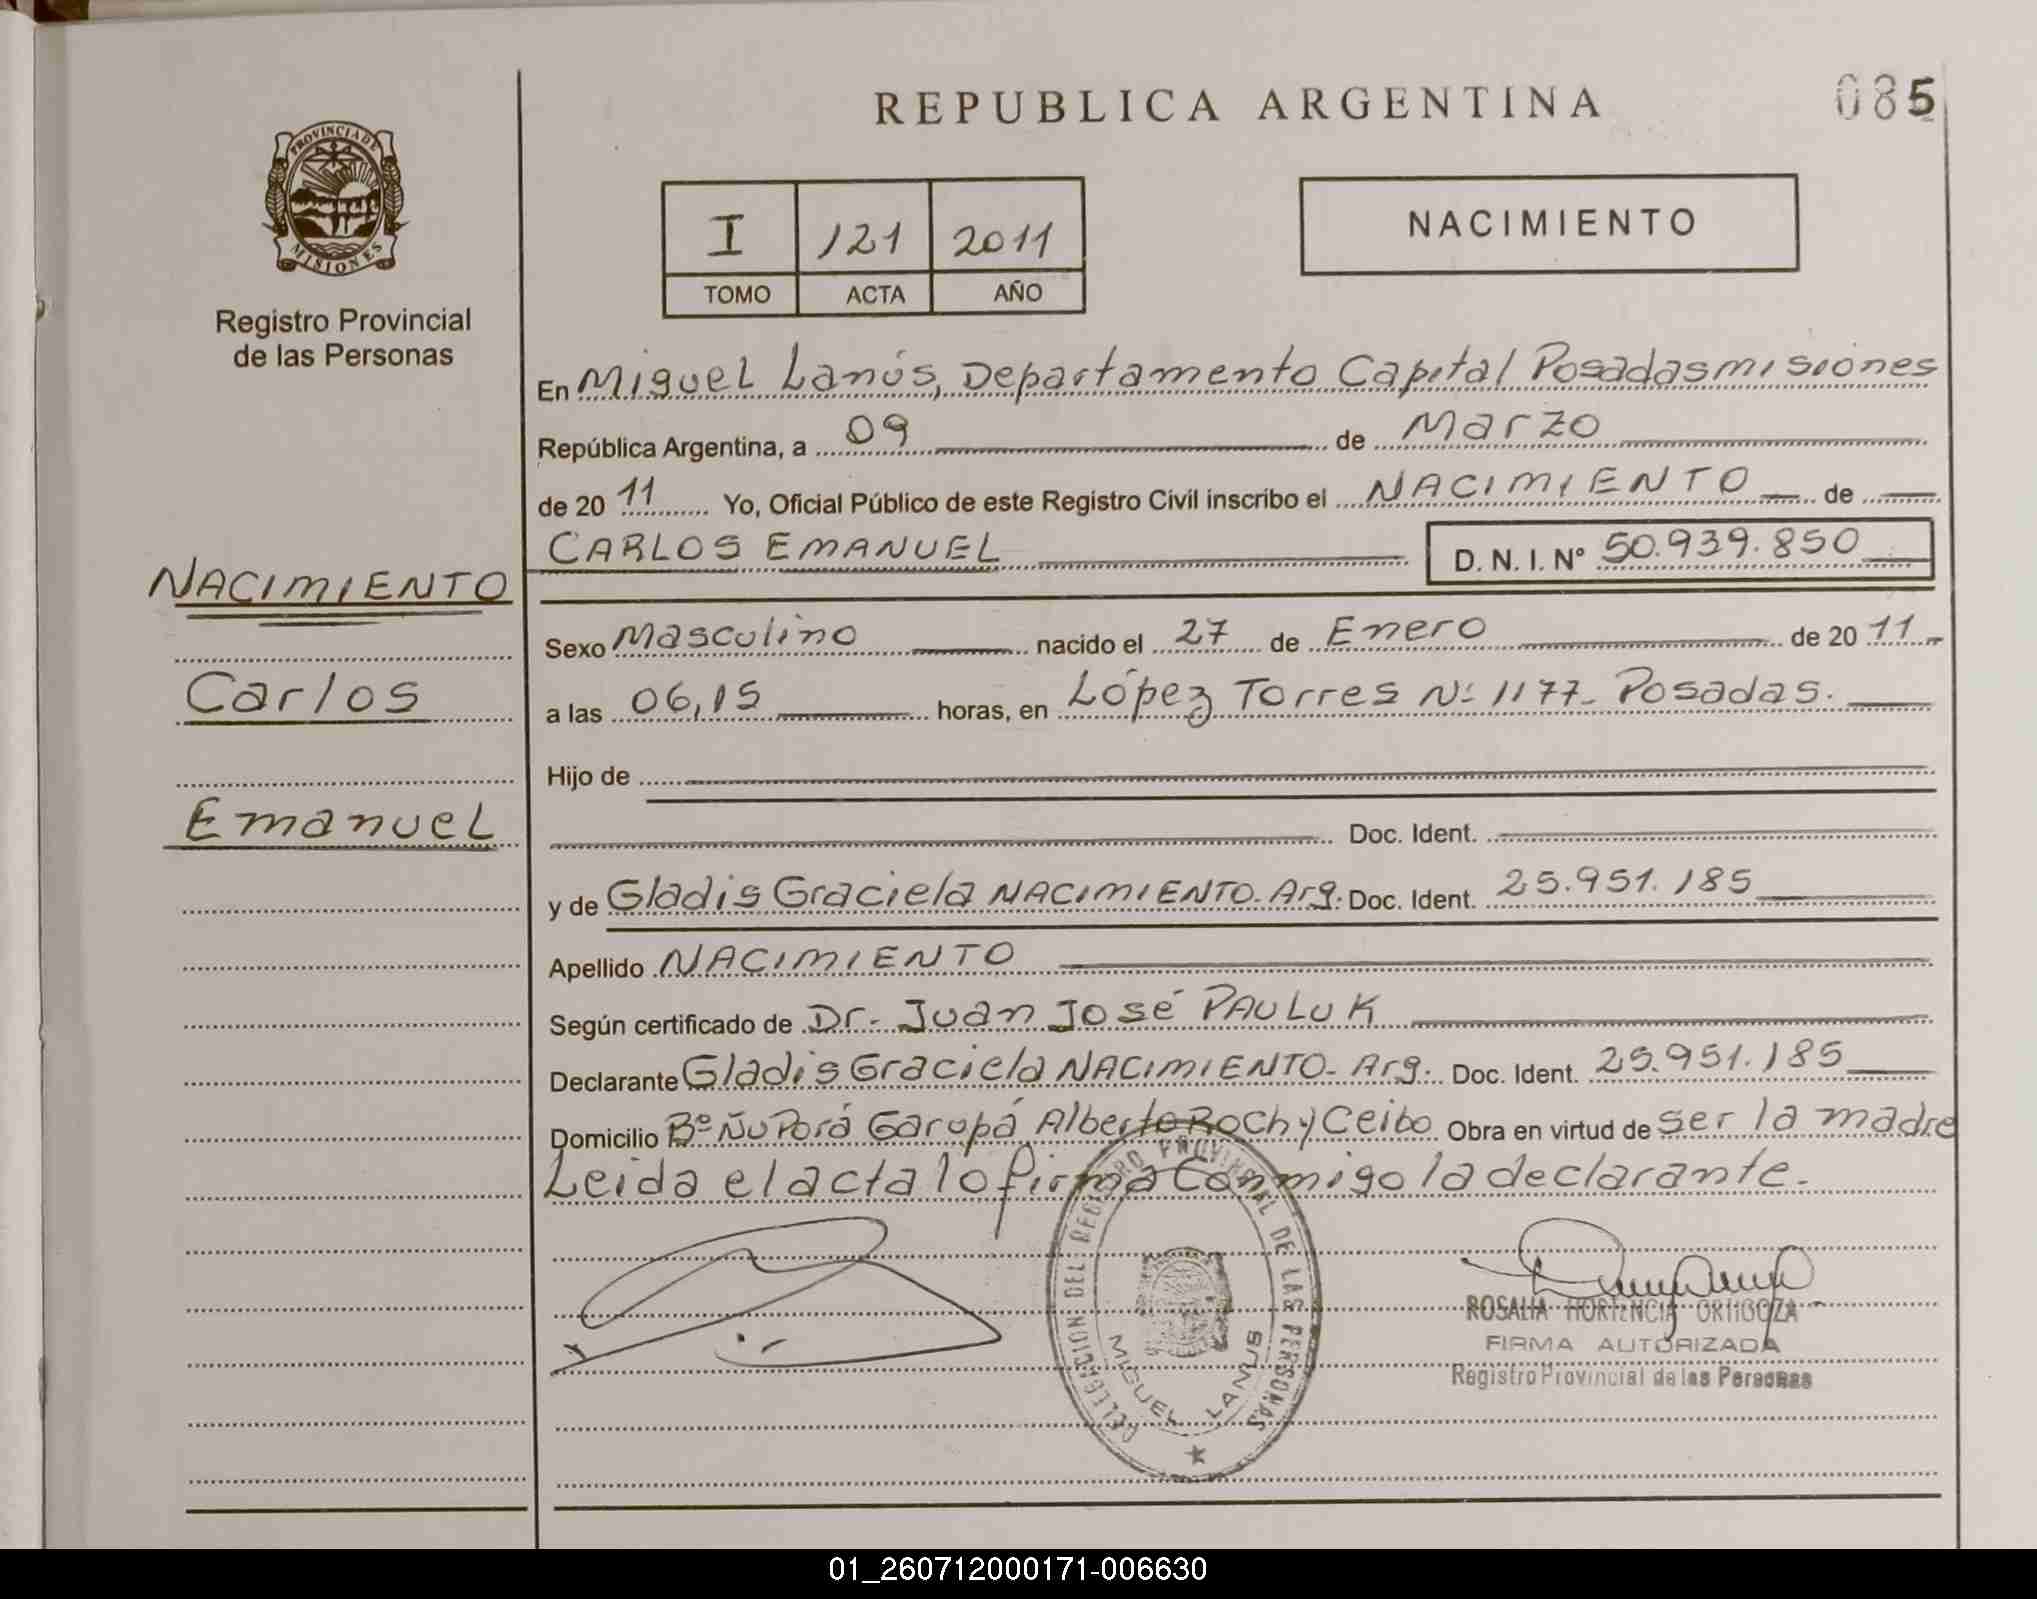 REPUBLICA ARGENTINA
085
PROVINCIA DE
MISIONES
Registro Provincial
de las Personas
I 121 2011
TOMO ACTA AÑO
NACIMIENTO
En Miguel Lanús, Departamento Capital Posadas misiones
República Argentina, a 09 de Marzo
de 20 11 Yo, Oficial Público de este Registro Civil inscribo el NACIMIENTO de
CARLOS EMANUEL D. N. I. Nº 50.939.850
NACIMIENTO
Carlos
Emanuel
Sexo Masculino nacido el 27 de Enero de 20 11
a las 06,15 horas, en López Torres Nº 1177- Posadas.
Hijo de
Doc. Ident.
y de Gladis Graciela NACIMIENTO. Arg. Doc. Ident. 25.951.185
Apellido NACIMIENTO
Según certificado de Dr. Juan José PAULUK
Declarante Gladis Graciela NACIMIENTO- Arg. Doc. Ident. 25.951.185
Domicilio Bº Ñu Porá Garupá Alberto Roch y Ceibo Obra en virtud de ser la madre
Leida el acta lo firma conmigo la declarante.
DELEGACION DEL REGISTRO PROVINCIAL DE LAS PERSONAS
MIGUEL LANUS
ROSALIA HORTENCIA ORTIGOZA
FIRMA AUTORIZADA
Registro Provincial de las Personas
01_260712000171-006630